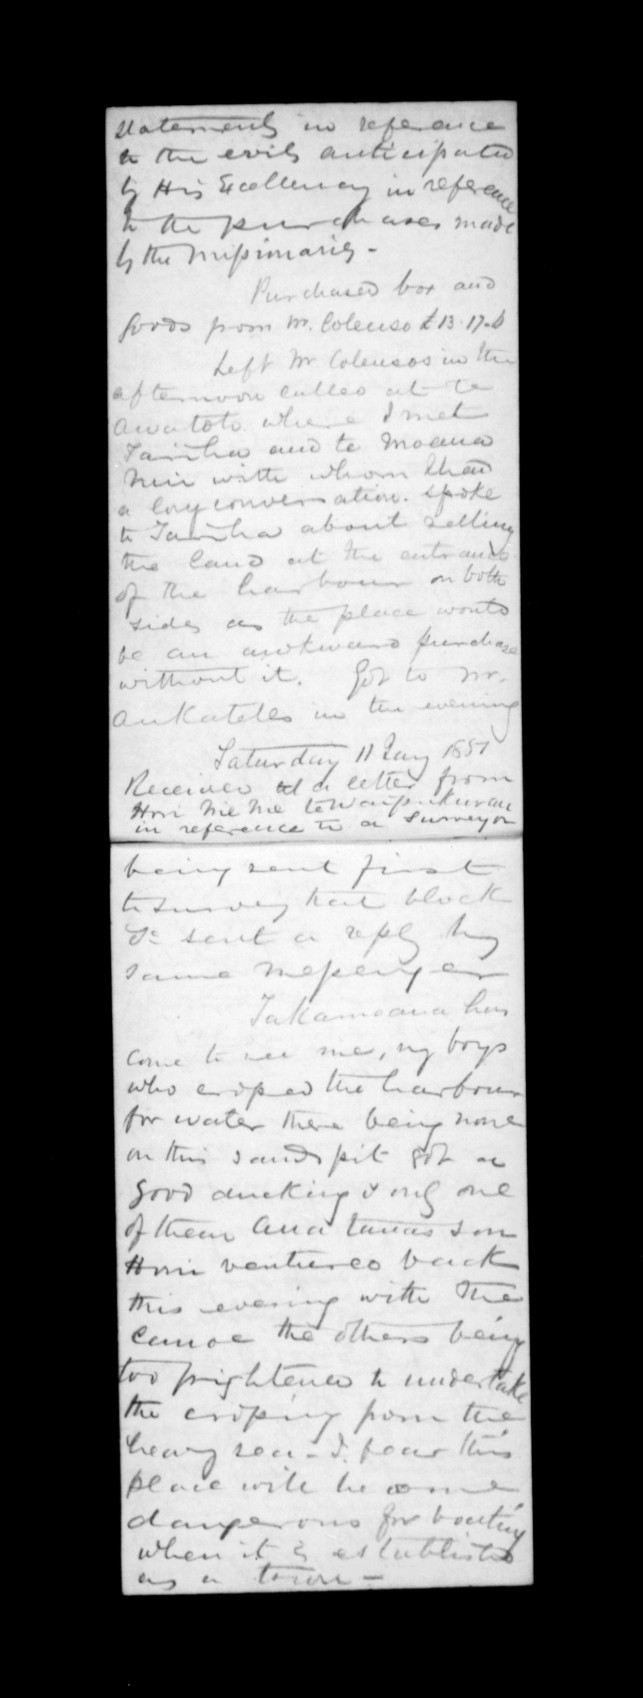 statements in reference
to the evils anticipated
by His Excellency in reference
to the purchases made
by the Missionaries -
Purchased box and
goods from Mr. Colenso £13.17.6
Left Mr Colensos in the
afternoon called at Te
Awatoto where I met
Tareha and te Moana
nui with whom I had
a long conversation. spoke
to Tareha about selling
the land at the entrance
of the harbour on both
sides as the place would
be an awkward purchase
without it. Got to Mr.
Ankateles in the evening
Saturday 11 Jany 1851
Received a letter from
Hori Nie Nie te Waipukurau
in reference to a surveyor
being sent first
to survey that block
sent a reply by
same Messenger
Takamoana has
come to see me, my boys
who crossed the harbour
for water there being none
on this sandspit got a
good ducking & only one
of them son
Hori ventured back
this evening with the
canoe the others being
too frightened to undertake
the crossing from the
heavy sea - I fear this
place will become
dangerous for boating
when it is established
as a town -